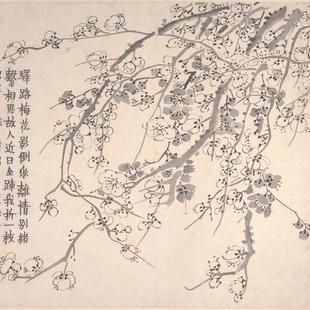 驛路梅花影倒垂離情別緒
繫相思故人近日全踈我折一枝